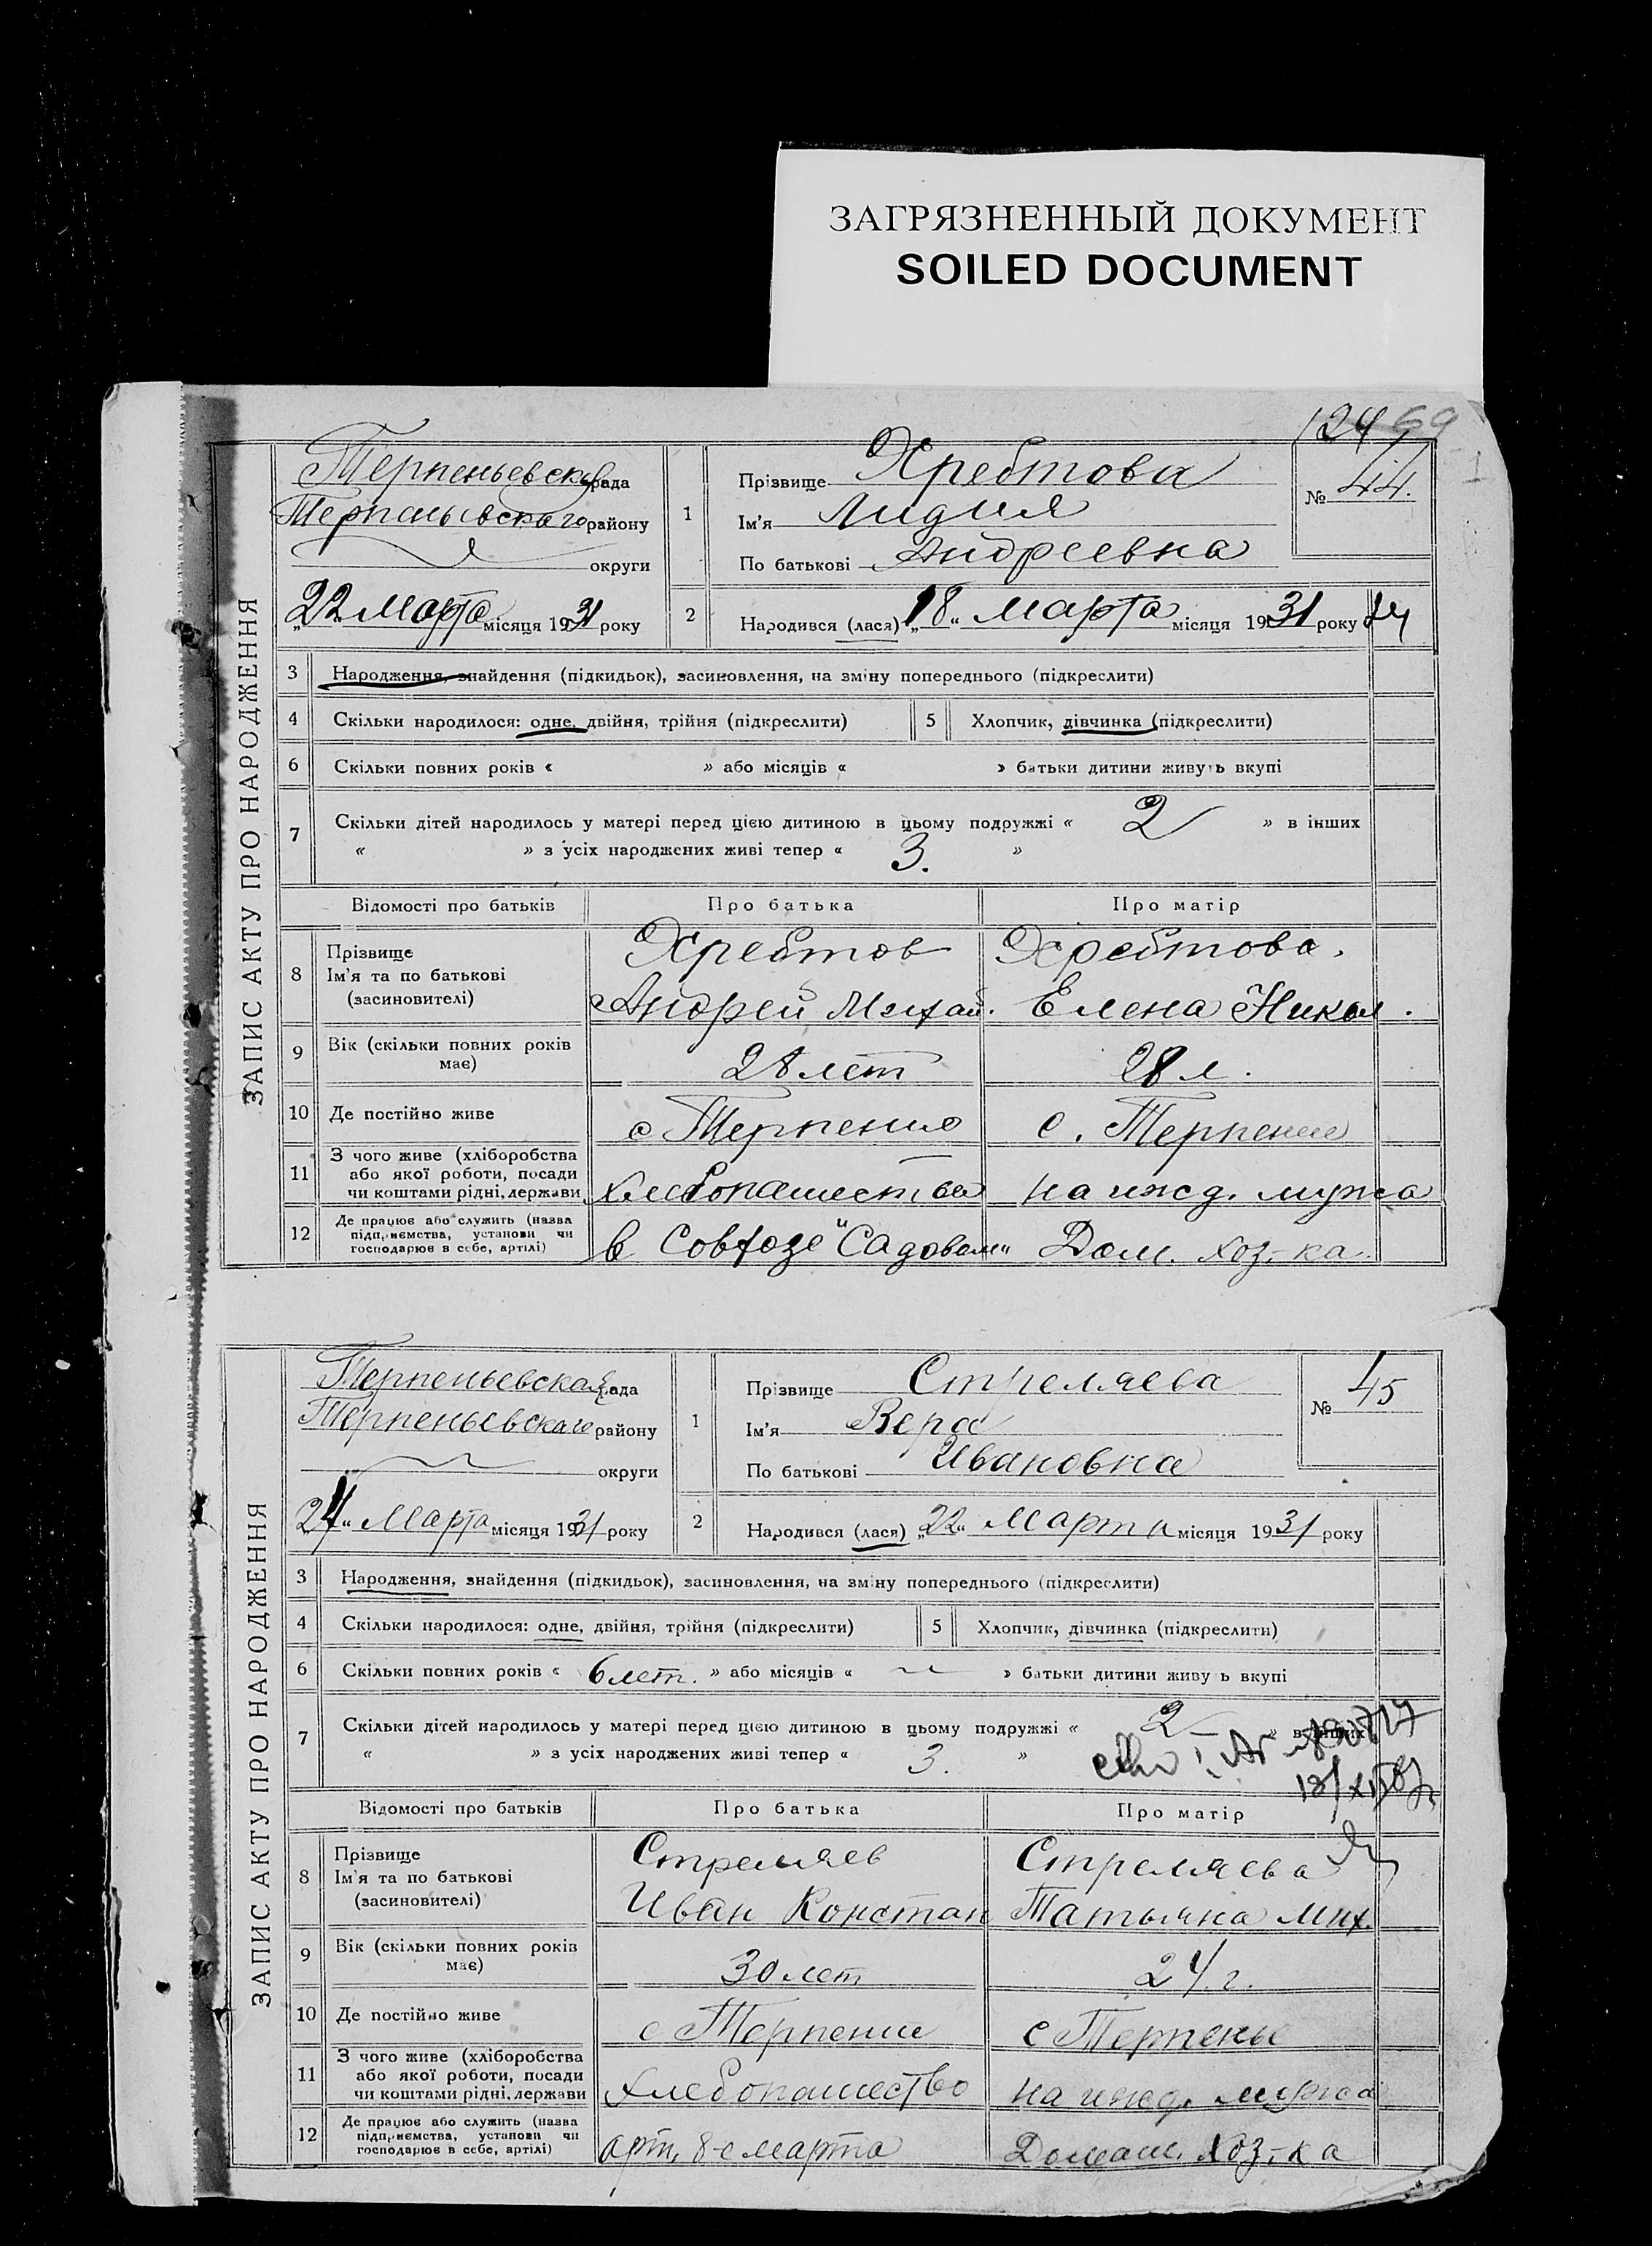 ЗАГРЯЗНЕННЫЙ ДОКУМЕНТ
SOILED DOCUMENT
124 69
ЗАПИС АКТУ ПРО НАРОДЖЕННЯ
Терпеньевская рада
Терпеньевскаго району
округи
„22 Марта місяця 1931 року
1
Прізвище Хребтова
Ім'я Лидия
По батькові Андреевна
№ 44.
2
Народився (лася) „18“ Марта місяця 1931 року
3 Народження, знайдення (підкидьок), засиновлення, на зміну попереднього (підкреслити)
4 Скільки народилося: одне, двійня, трійня (підкреслити) 5 Хлопчик, дівчинка (підкреслити)
6 Скільки повних років « » або місяців « » батьки дитини живуть вкупі
7 Скільки дітей народилось у матері перед цією дитиною в цьому подружжі « 2 » в інших
« » з усіх народжених живі тепер « 3. »
Відомості про батьків Про батька Про матір
8 Прізвище
Ім'я та по батькові
(засиновителі)
Хребтов
Андрей Михай.
Хребтова.
Елена Никол.
9 Вік (скільки повних років має) 28 лет 28 л.
10 Де постійно живе с Терпение с. Терпение
11 З чого живе (хліборобства
або якої роботи, посади
чи коштами рідні, держави
Хлебопашества на ижд. мужа
12 Де працює або служить (назва
підприємства, установи чи
господарює в себе, артілі)
в Совхозе "Садовом" Дом. хоз-ка.
ЗАПИС АКТУ ПРО НАРОДЖЕННЯ
Терпеньевская рада
Терпеньевскаго району
округи
24“ Марта місяця 1931 року
1
Прізвище Стреляева
Ім'я Вера
По батькові Ивановна
№ 45
2
Народився (лася) „22“ Марта місяця 1931 року
3 Народження, знайдення (підкидьок), засиновлення, на зміну попереднього (підкреслити)
4 Скільки народилося: одне, двійня, трійня (підкреслити) 5 Хлопчик, дівчинка (підкреслити)
6 Скільки повних років « 6 лет. » або місяців « » батьки дитини живу ь вкупі
7 Скільки дітей народилось у матері перед цією дитиною в цьому подружжі « 2 » в інших
« » з усіх народжених живі тепер « 3. »
Відомості про батьків Про батька Про матір
8 Прізвище
Ім'я та по батькові
(засиновителі)
Стреляев
Иван Констан
Стреляева
Татьяна Мих.
9 Вік (скільки повних років має) 30 лет 24 г.
10 Де постійно живе с Терпение с Терпенье
11 З чого живе (хліборобства
або якої роботи, посади
чи коштами рідні, держави
Хлебопашество на ижд. мужа
12 Де працює або служить (назва
підприємства, установи чи
господарює в себе, артілі)
арт. 8-е марта Домаш. хоз-ка